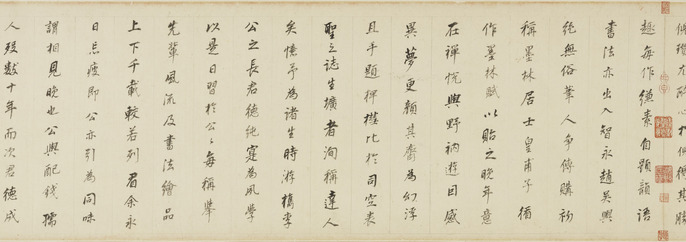 尤醉心於倪得其勝
趣每作縑素自題韻語
書法亦出入智永趙吳興
絕無俗筆人爭傳購初
稱墨林居士皇甫子循
作墨林賦以貽之晚年意
在禪悅與野衲遊因感
異夢更顏其齋為幻浮
且手題椑槥比於司空表
聖之誌生壙者洵稱達人
矣憶予為諸生時游檇李
公之長君德純寔為夙學
以是日習於公公每稱舉
先輩風流及書法繪品
上下千載較若列眉余永
日忘疲即公亦引為同味
謂相見晚也公與配錢孺
人歿數十年而次君德成